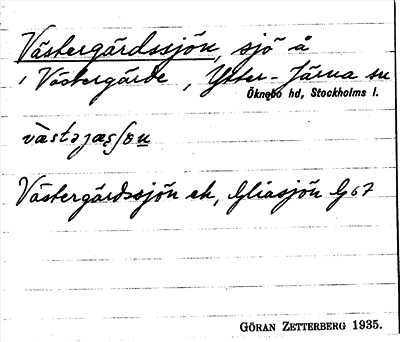 Västergårdssjön, sjö å
i Västergärde, Ytter-Järna sn
Öknebo hd, Stockholms l.
Västergårdssjön ek, Gliasjön G 67
GÖRAN ZETTERBERG 1935.